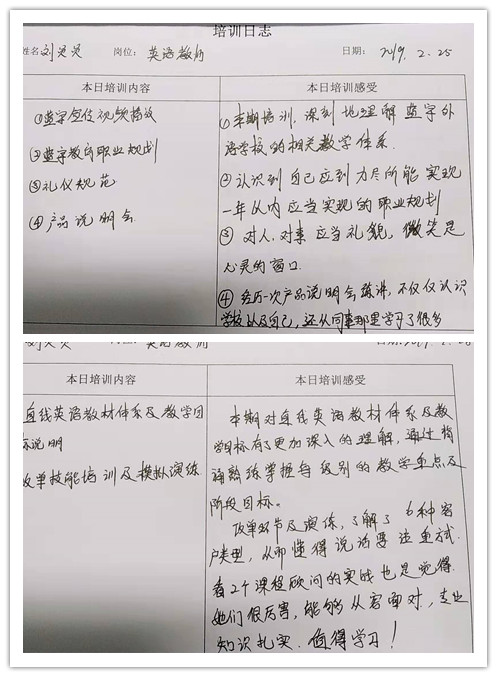 培训日志
姓名 刘灵灵 岗位： 英语教师 日期： 2019.2.25
本日培训内容 本日培训感受
①蓝字宣传视频播放
②蓝字教师职业规划
③礼仪规范
④产品说明会
①本期培训，深刻地理解蓝字外
语学校的相关教学体系.
②认识到自己应到力尽所能实现
一年以内应当实现的职业规划
③ 对人.对事应当礼貌，微笑是
心灵的窗口.
④ 经历一次产品说明会演讲，不仅仅认识
学校以及自己，还从同事那里学习了很多
英语教师
本日培训内容 本日培训感受
直线英语教材体系及教学目
标说明
及单技能培训及模拟演练
本期对直线英语教材体系及教
学目标有了更加深入的理解，通过
熟练掌握每级别的教学重点及
阶段目标。
及单环节及演练，了解了 6种客
户类型，从而懂得说话要注重方式.
看2个课程顾问的实战也是觉得
她们很厉害，能够从容面对，专业
知识扎实.值得学习！